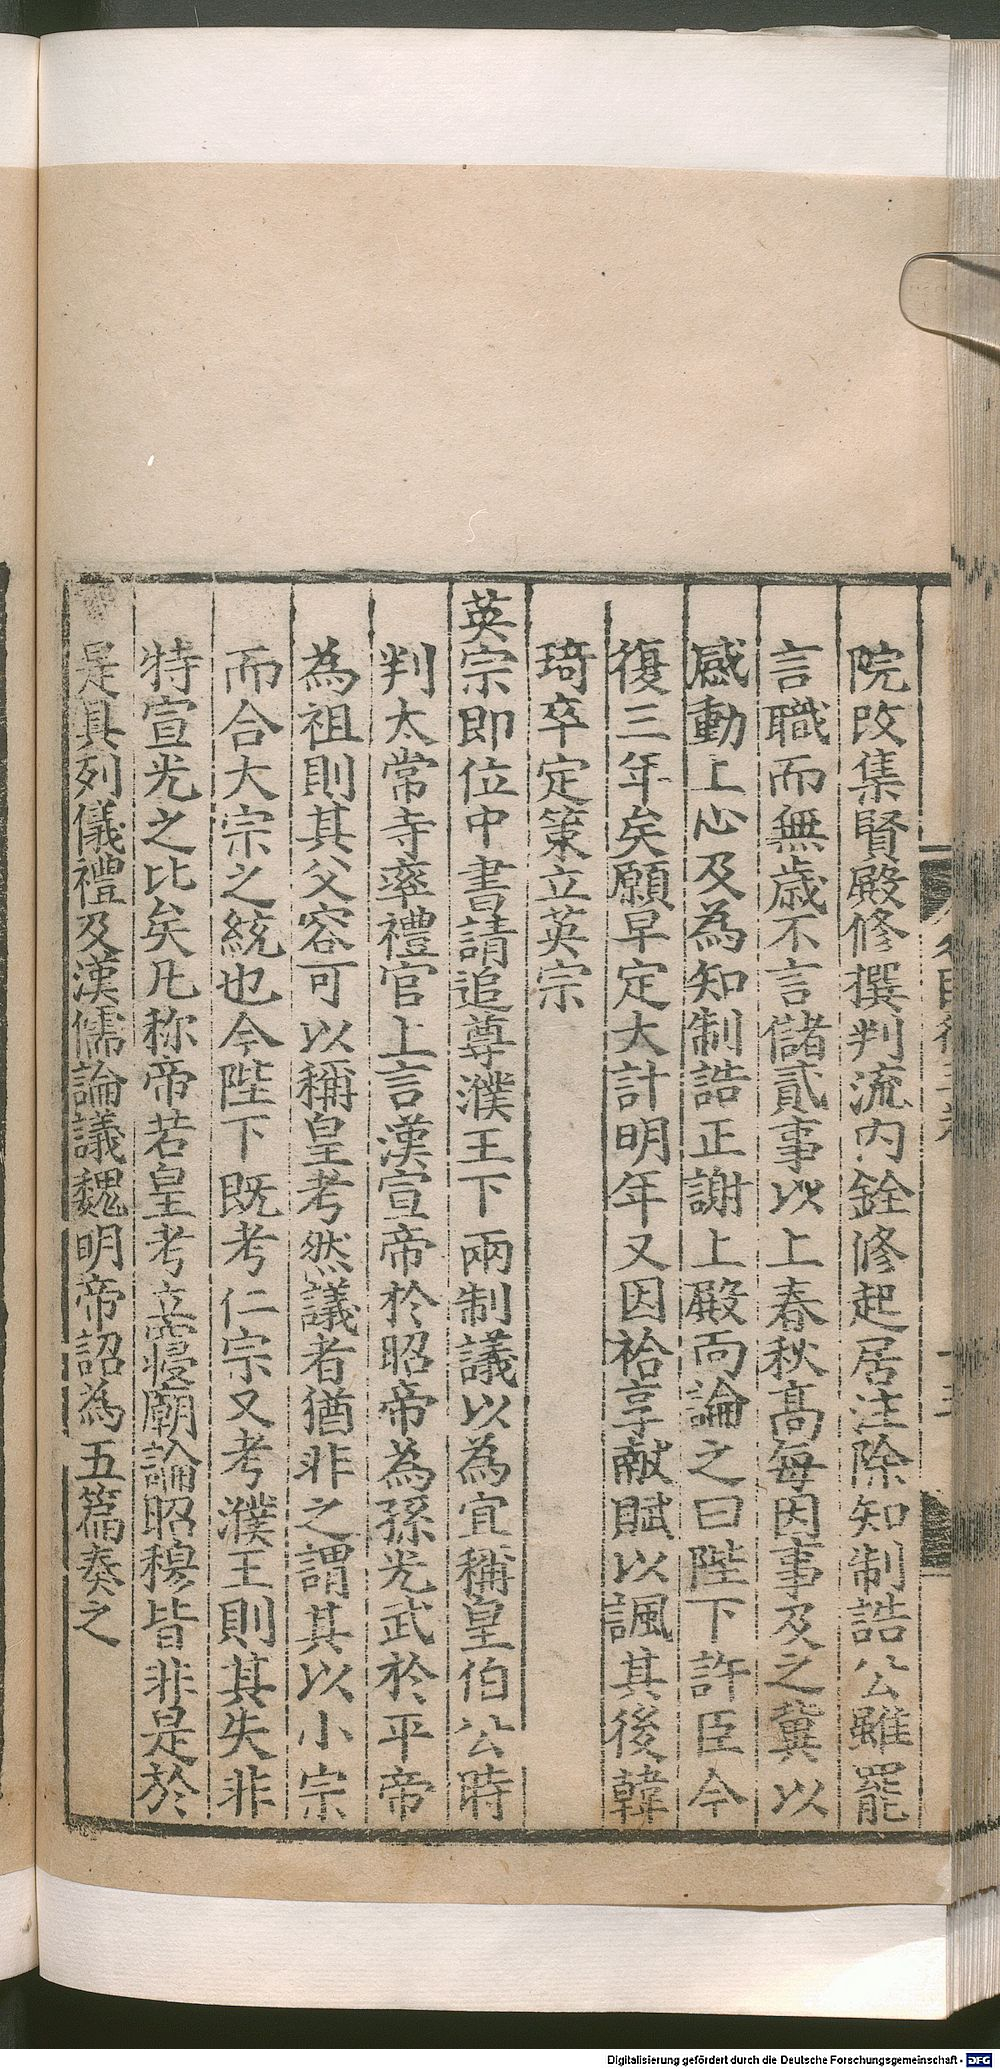 院改集賢殿修撰判流内銓修起居注除知制誥公雖罷
言職而無歲不言儲貳事以上春秋髙每因事及之冀以
感動上心及為知制誥正謝上殿面論之曰陛下許臣今
復三年矣願早定大計明年又因祫享献賦以諷其後韓
琦卒定策立英宗
英宗即位中書請追尊濮王下兩制議以為宜稱皇伯公時
判太常寺率禮官上言漢宣帝於昭帝為孫光武於平帝
為祖則其父容可以稱皇考然議者猶非之謂其以小宗
而合大宗之統也今陛下既考仁宗又考濮王則其失非
特宣光之比矣凡称帝若皇考立寢廟論昭穆皆非是於
是具列儀禮及漢儒論議魏明帝詔為五篇奏之
Digitalisierung gefördert durch die Deutsche Forschungsgemeinschaft - DFG